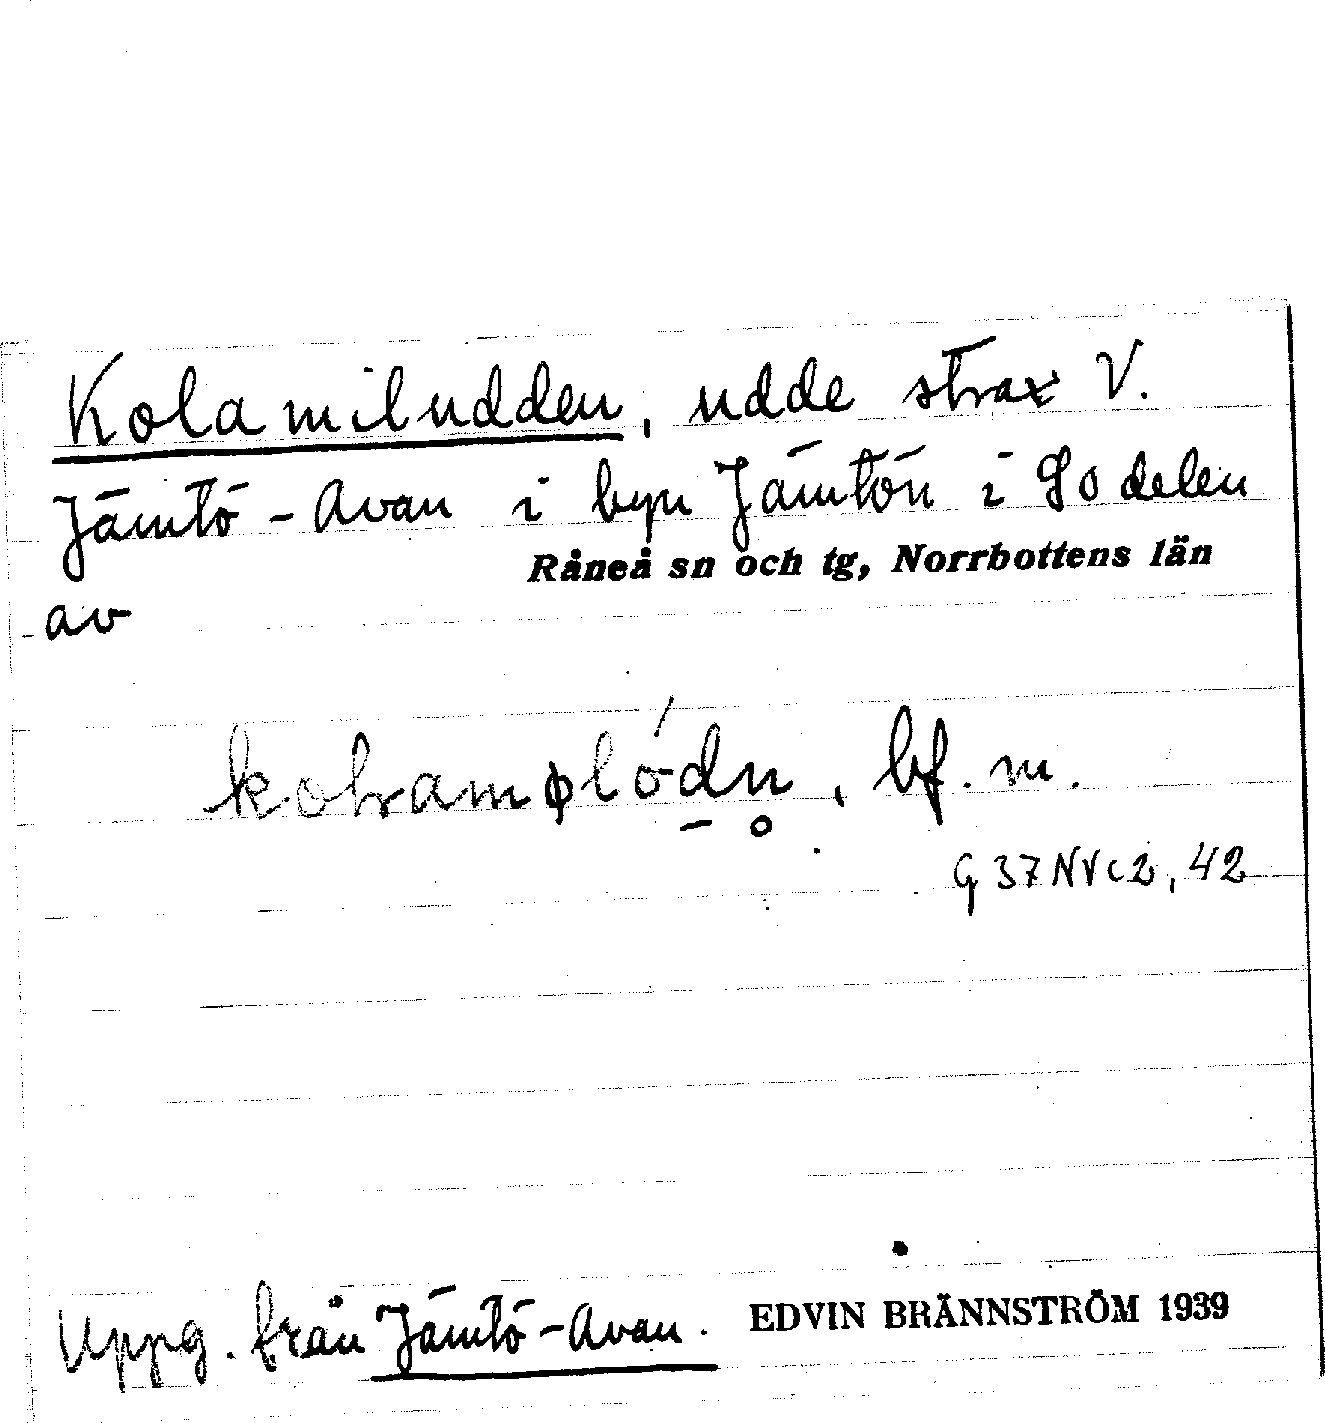 Kolamiludden, udde strax V.
Jämtö-Avan i byn Jämtön i SO delen
Råneå sn och tg, Norrbottens län
av
bf. m.
G 37 NV c 2, 42
Uppg. från Jämtö-Avan. EDVIN BRÄNNSTRÖM 1939